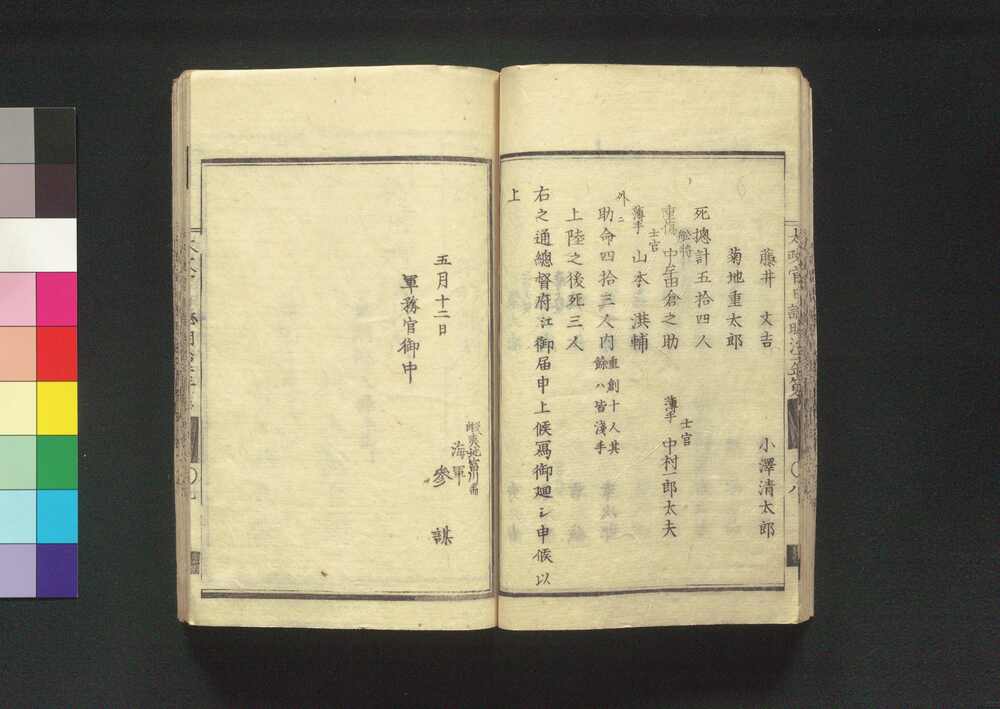 藤井丈吉　小澤清太郎
菊地重太郎
死摠計五拾四人
舩将
重傷　中牟田倉之助
士官
薄手　中村一郎太夫
士官
薄手　山本洪輔
外ニ
助命四拾三人内重創十人其
餘ハ皆淺手
上陸之後死三人
右之通總督府江御届申上候寫御廻シ申候以
上
五月十二日
軍務官御中
海軍
參謀